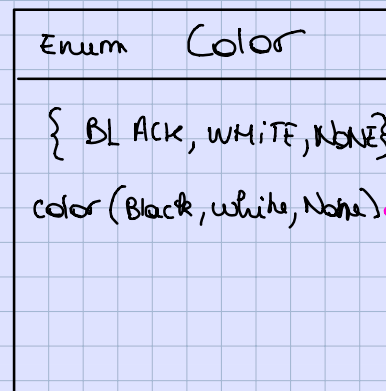 Enum Color
{ BLACK, WHiTE, NONE}
color (Black, white, None)